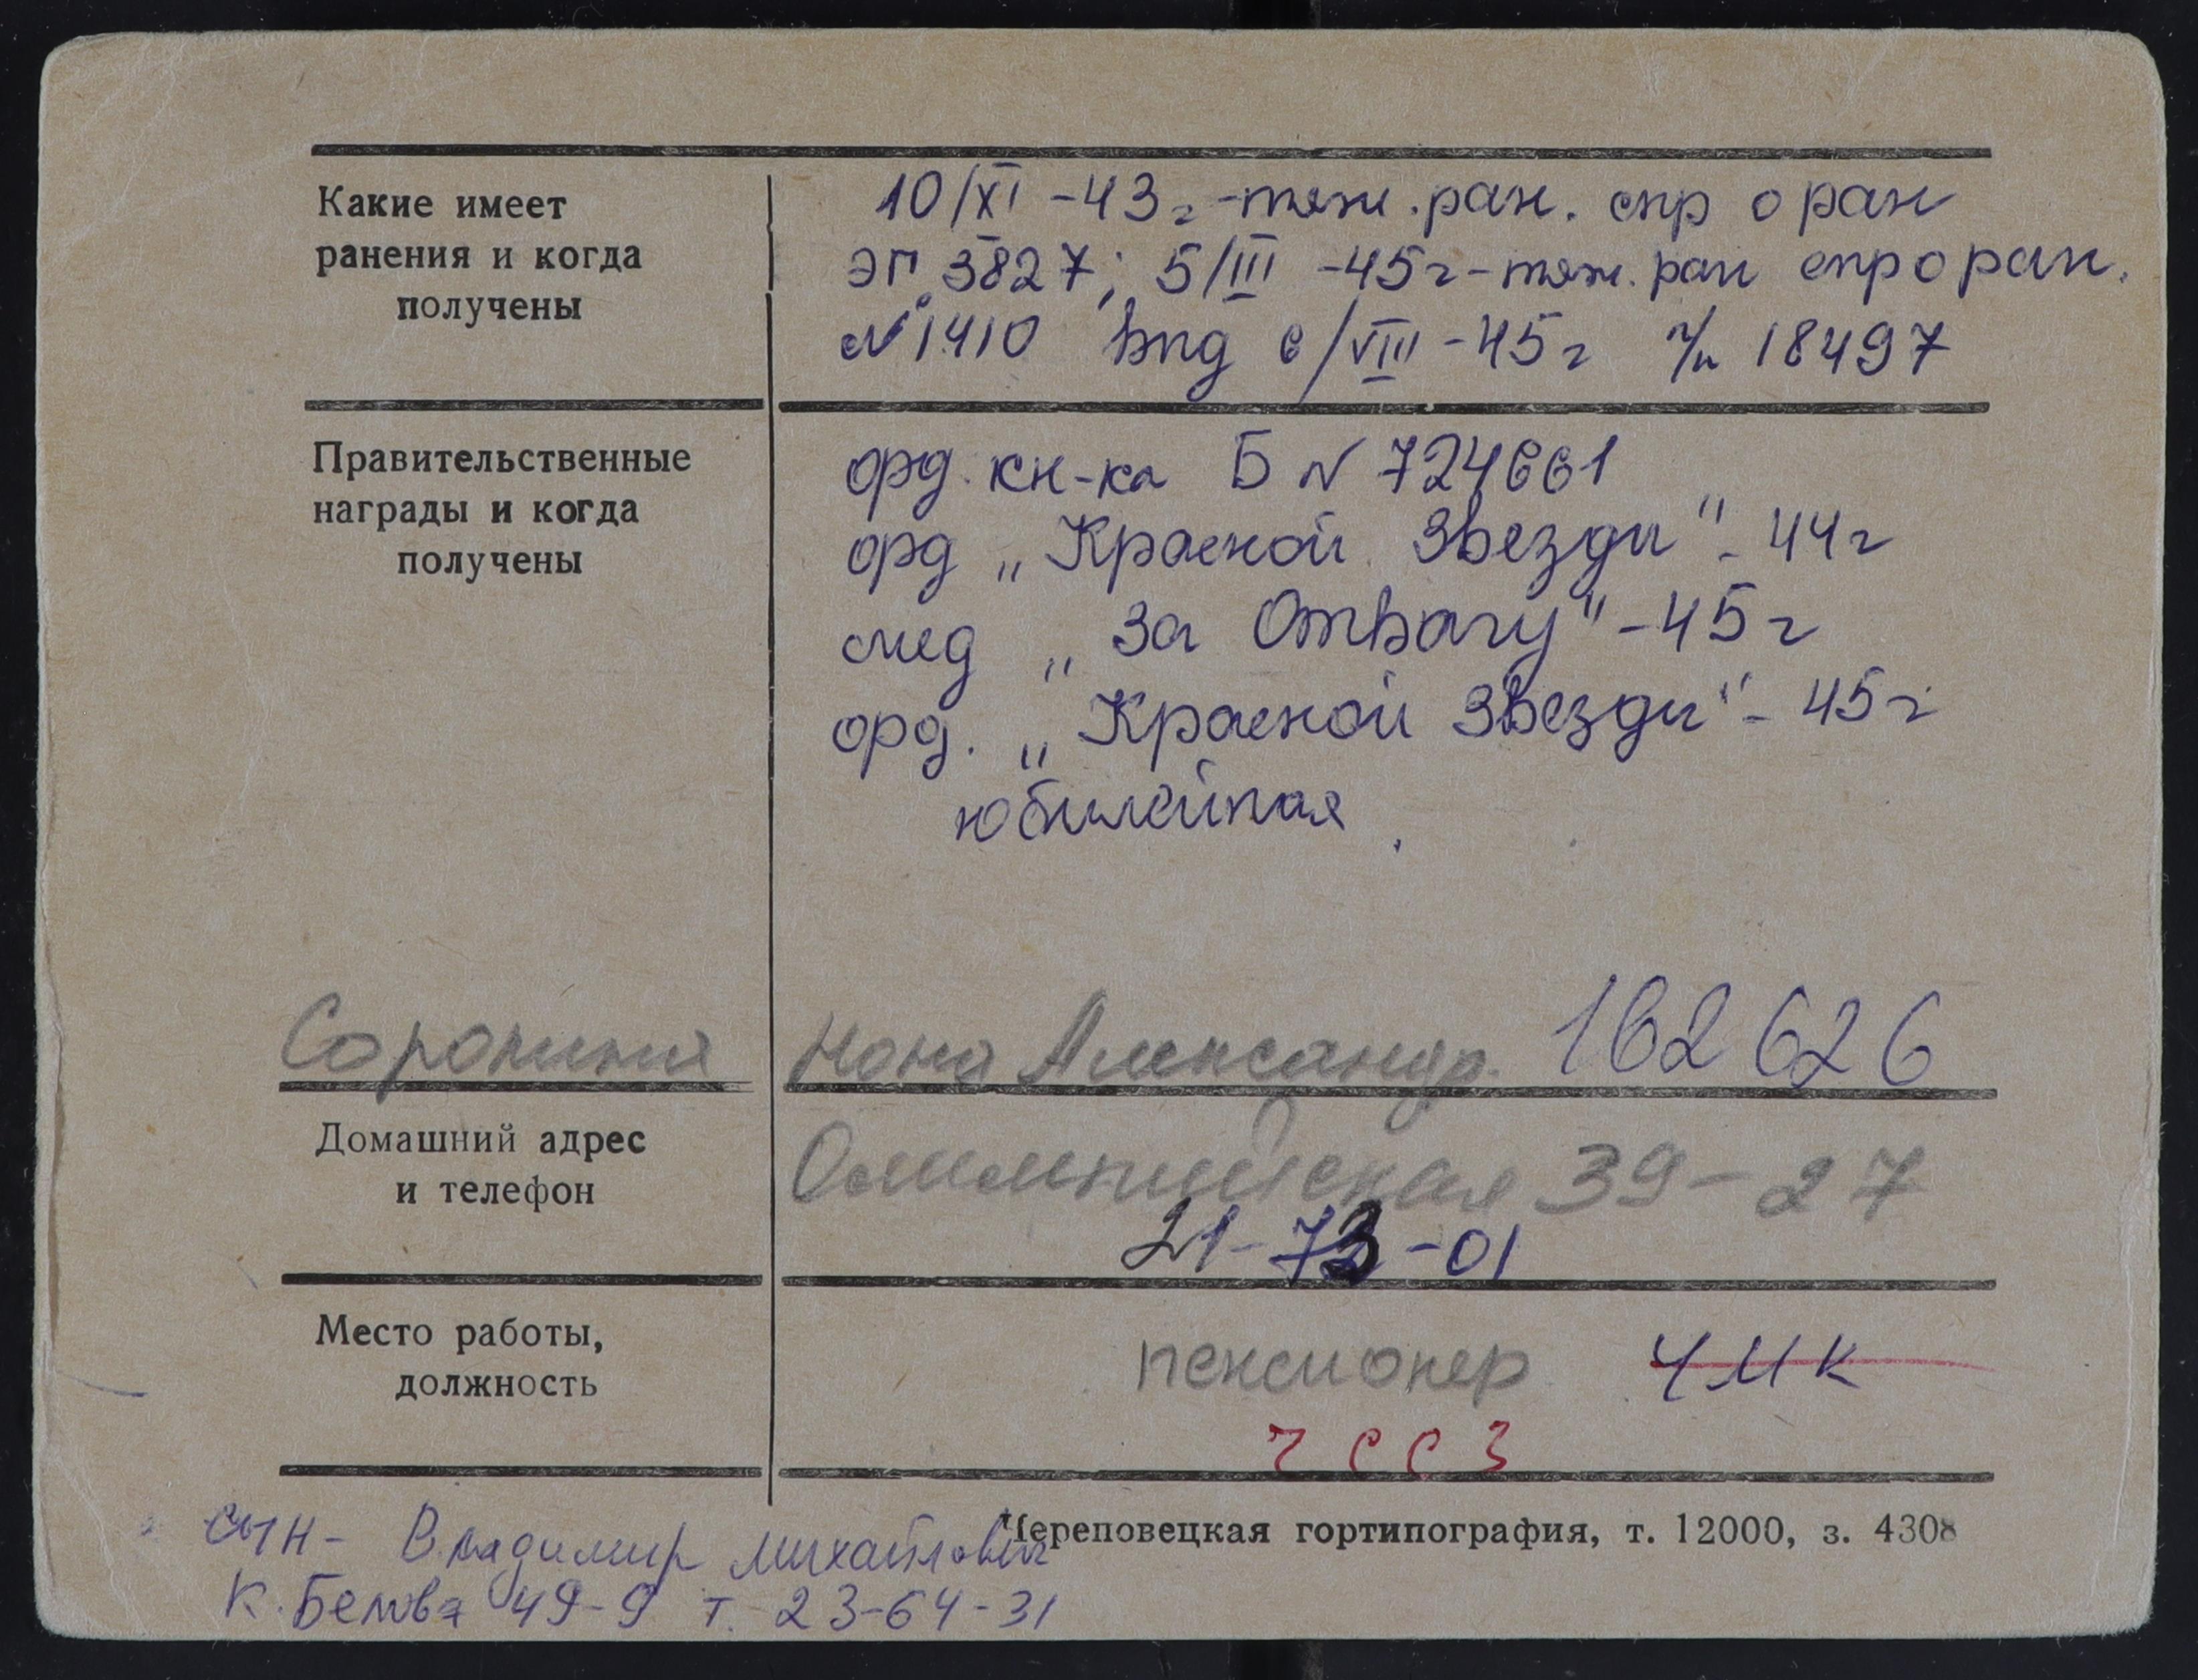 Какие имеет
ранения и когда
получены
10/XI -43г -тяж. ран. спр о ран
ЭГ 3827; 5/III -45г - тяж. ран спр о ран.
№1410 выд 6/VIII -45г п/п 18497
Правительственные
награды и когда
получены
орд. кн-ка Б № 724661
орд „Красной Звезды" - 44г
мед „За Отвагу" - 45г
орд. „Красной Звезды" - 45г
юбилейная
Сорокина Нона Александр. 162626
Домашний адрес
и телефон
Олимпийская 39-27
21-73-01
Место работы,
должность
пенсионер ЧМК
ЧССЗ
Череповецкая гортипография, т. 12000, з. 4308
сын - Владимир Михайлович
К. Белова 49-9 т. 23-64-31